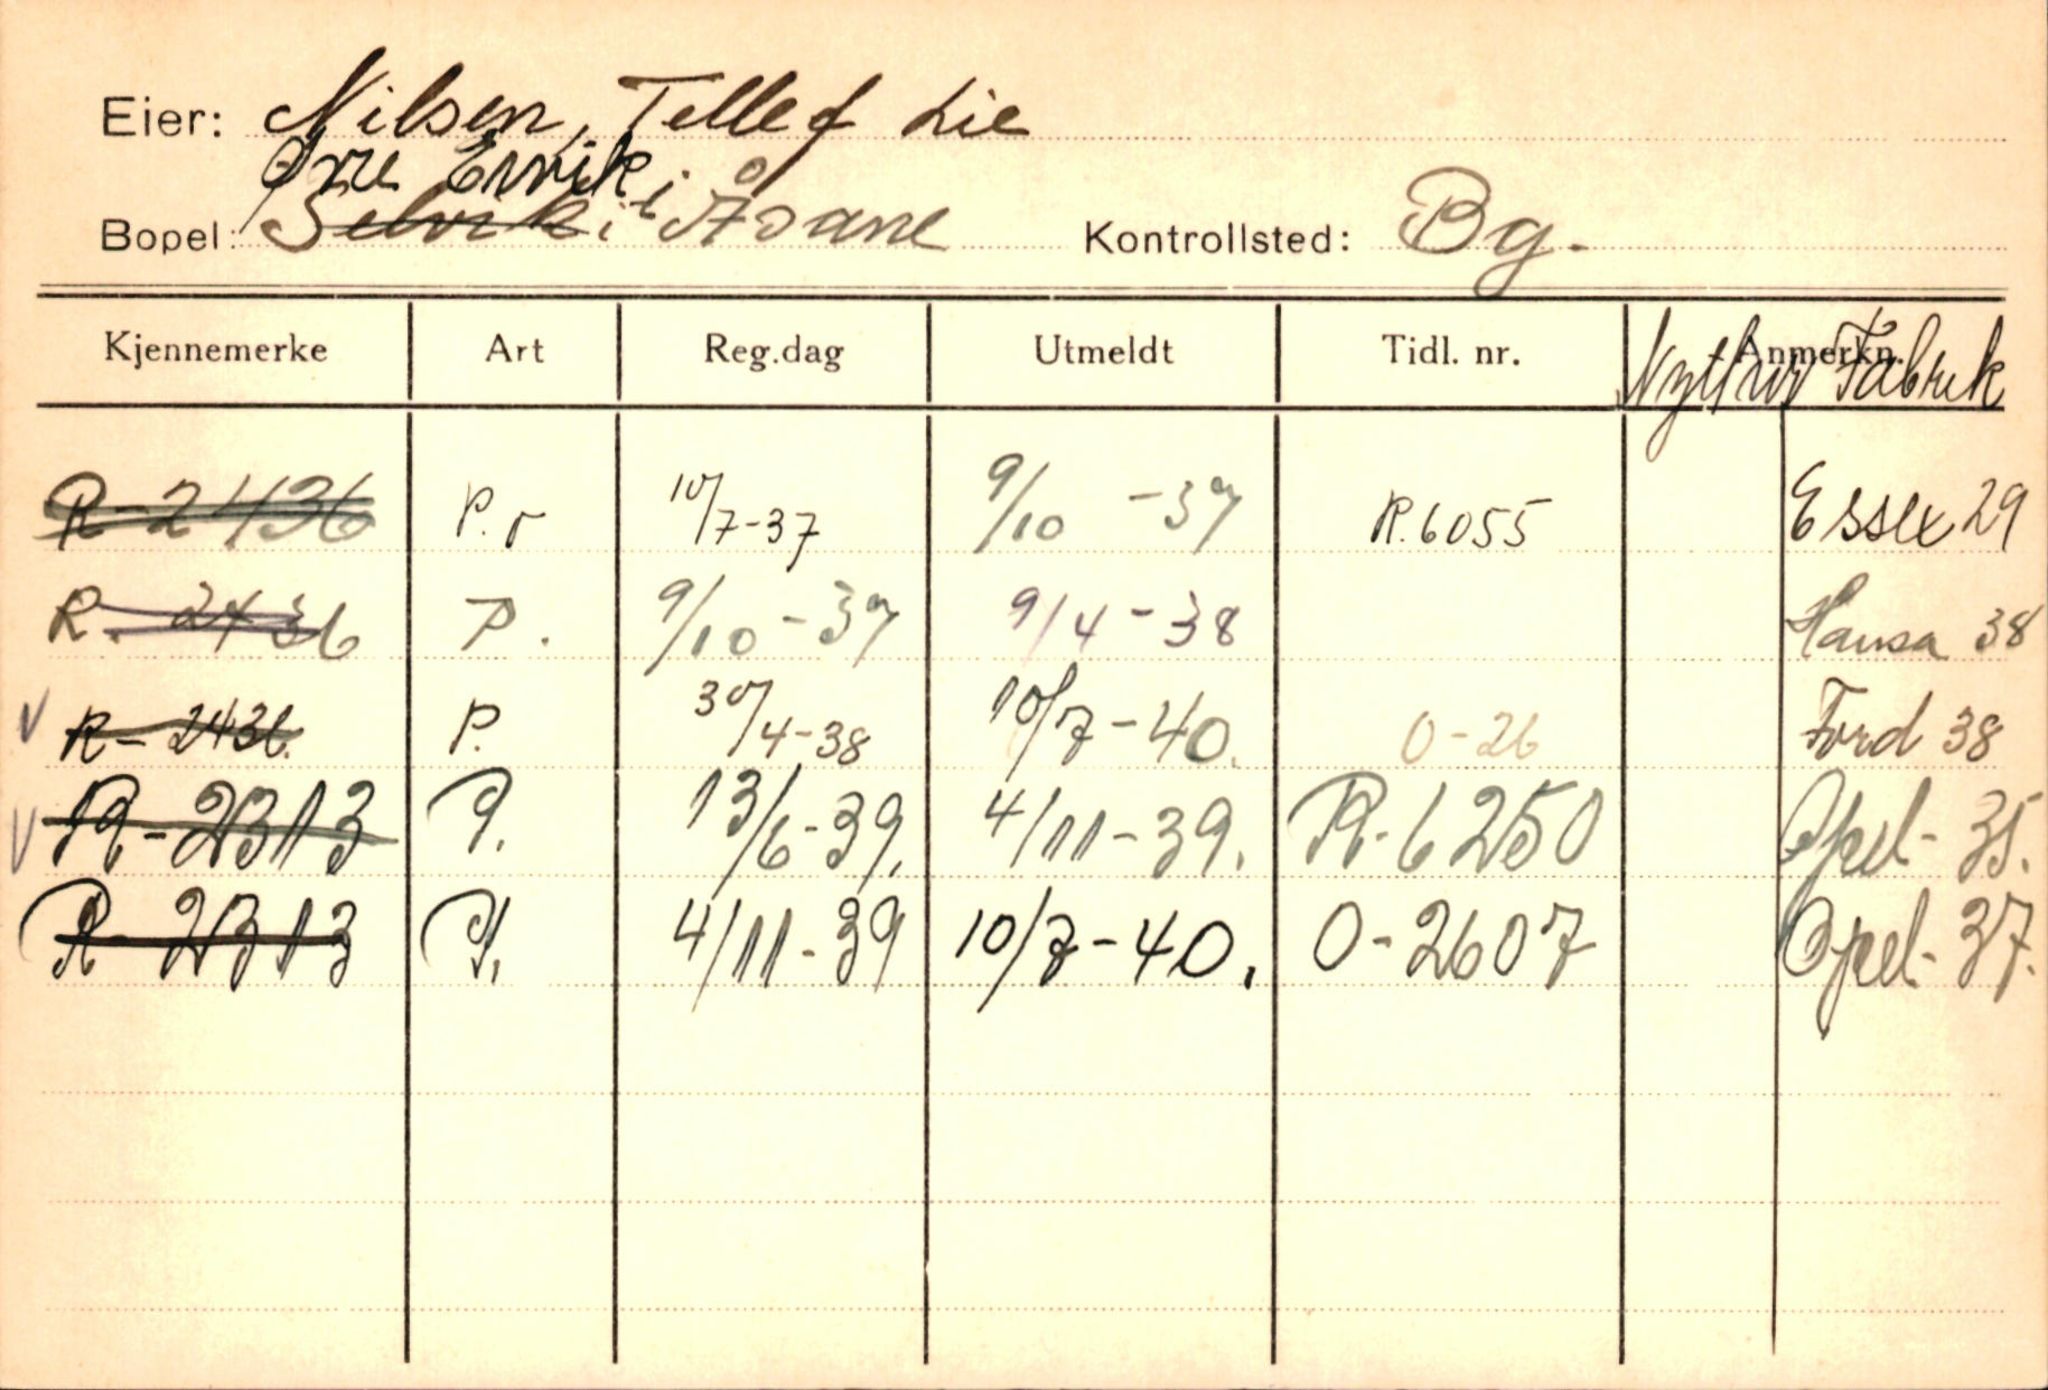 Eier: Nilsen, Tellef Lie
Øvre Ervik i
Bopel: Selvik i Åsane Kontrollsted: Bg.
Kjennemerke Art Reg.dag Utmeldt Tidl. nr. Anmerkn.
Fabrik
R-2436 P. r 10/7-37 9/10 -37 R.6055 Essex 29
R. 2436 P. 9/10-37 9/4-38 Hansa 38
V R-2436. P. 30/4-38 10/7-40. O-26 Ford 38
V R-2313 P. 13/6-39. 4/11-39. R-6250 Opel-35.
R-2313 P. 4/11-39 10/7-40. O-2607 Opel-37.